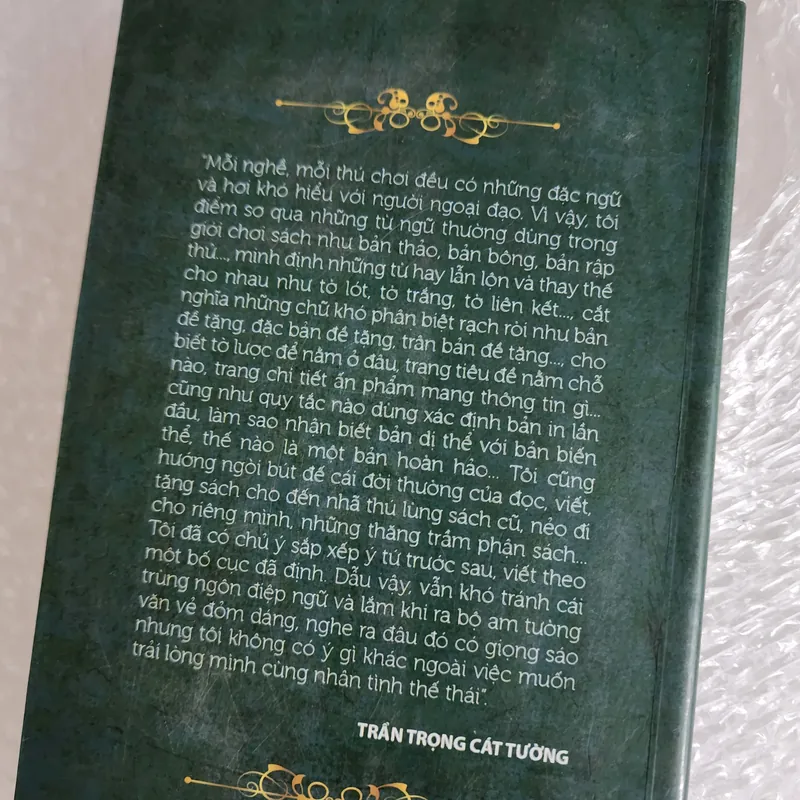 "Mỗi nghề, mỗi thú chơi đều có những đặc ngữ
và hơi khó hiểu với người ngoại đạo. Vì vậy, tôi
điểm sơ qua những từ ngữ thường dùng trong
giới chơi sách như bản thảo, bản bông, bản rập
thử..., minh định những từ hay lẫn lộn và thay thế
cho nhau như tờ lót, tờ trắng, tờ liên kết..., cắt
nghĩa những chữ khó phân biệt rạch ròi như bản
đề tặng, đặc bản đề tặng, trân bản đề tặng..., cho
biết tờ lược đề nằm ở đâu, trang tiêu đề nằm chỗ
nào, trang chi tiết ấn phẩm mang thông tin gì...
cũng như quy tắc nào dùng xác định bản in lần
đầu, làm sao nhận biết bản dị thể với bản biến
thể, thế nào là một bản hoàn hảo... Tôi cũng
hướng ngòi bút để cái đời thường của đọc, viết,
tặng sách cho đến nhã thú lùng sách cũ, nẻo đi
cho riêng mình, những thăng trầm phận sách...
Tôi đã có chú ý sắp xếp ý tứ trước sau, viết theo
một bố cục đã định. Dẫu vậy, vẫn khó tránh cái
trùng ngôn điệp ngữ và lắm khi ra bộ am tường
văn vẻ đỏm dáng, nghe ra đâu đó có giọng sáo
nhưng tôi không có ý gì khác ngoài việc muốn
trải lòng mình cùng nhân tình thế thái".
TRẦN TRỌNG CÁT TƯỜNG